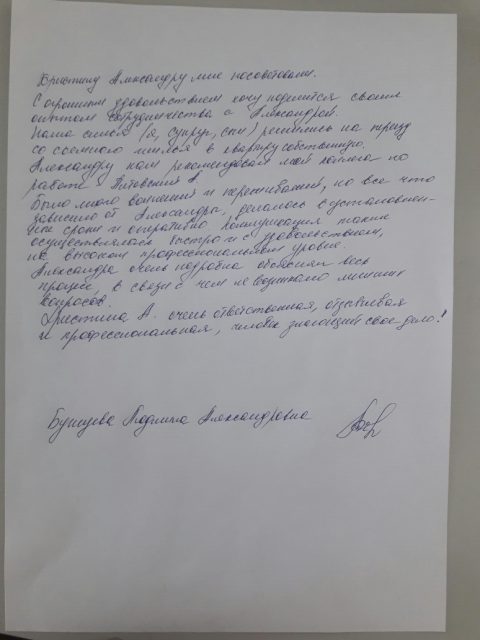 Христину Александру мне посоветовали.
С огромным удовольствием хочу поделится своим
опытом сотрудничества с Александрой.
Наша семья (я, супруг, сын) решились на переезд
со съемного жилья в квартиру собственную.
Александру нам рекомендовал мой коллега по
работе А.
Было много волнений и переживаний, но все что
зависило от Александры, делалось в установлен-
ные сроки и оперативно коммуникация также
осуществлялась быстро и с удовольствием,
на высоком профессиональном уровне.
Александра очень подробна объясняла весь
процес, в связи с чем не возникало лишних
вопросов.
Христина А. очень ответственная, отзывчивая
и профессиональная, человек знающий свое дело!
Людмила Александровна